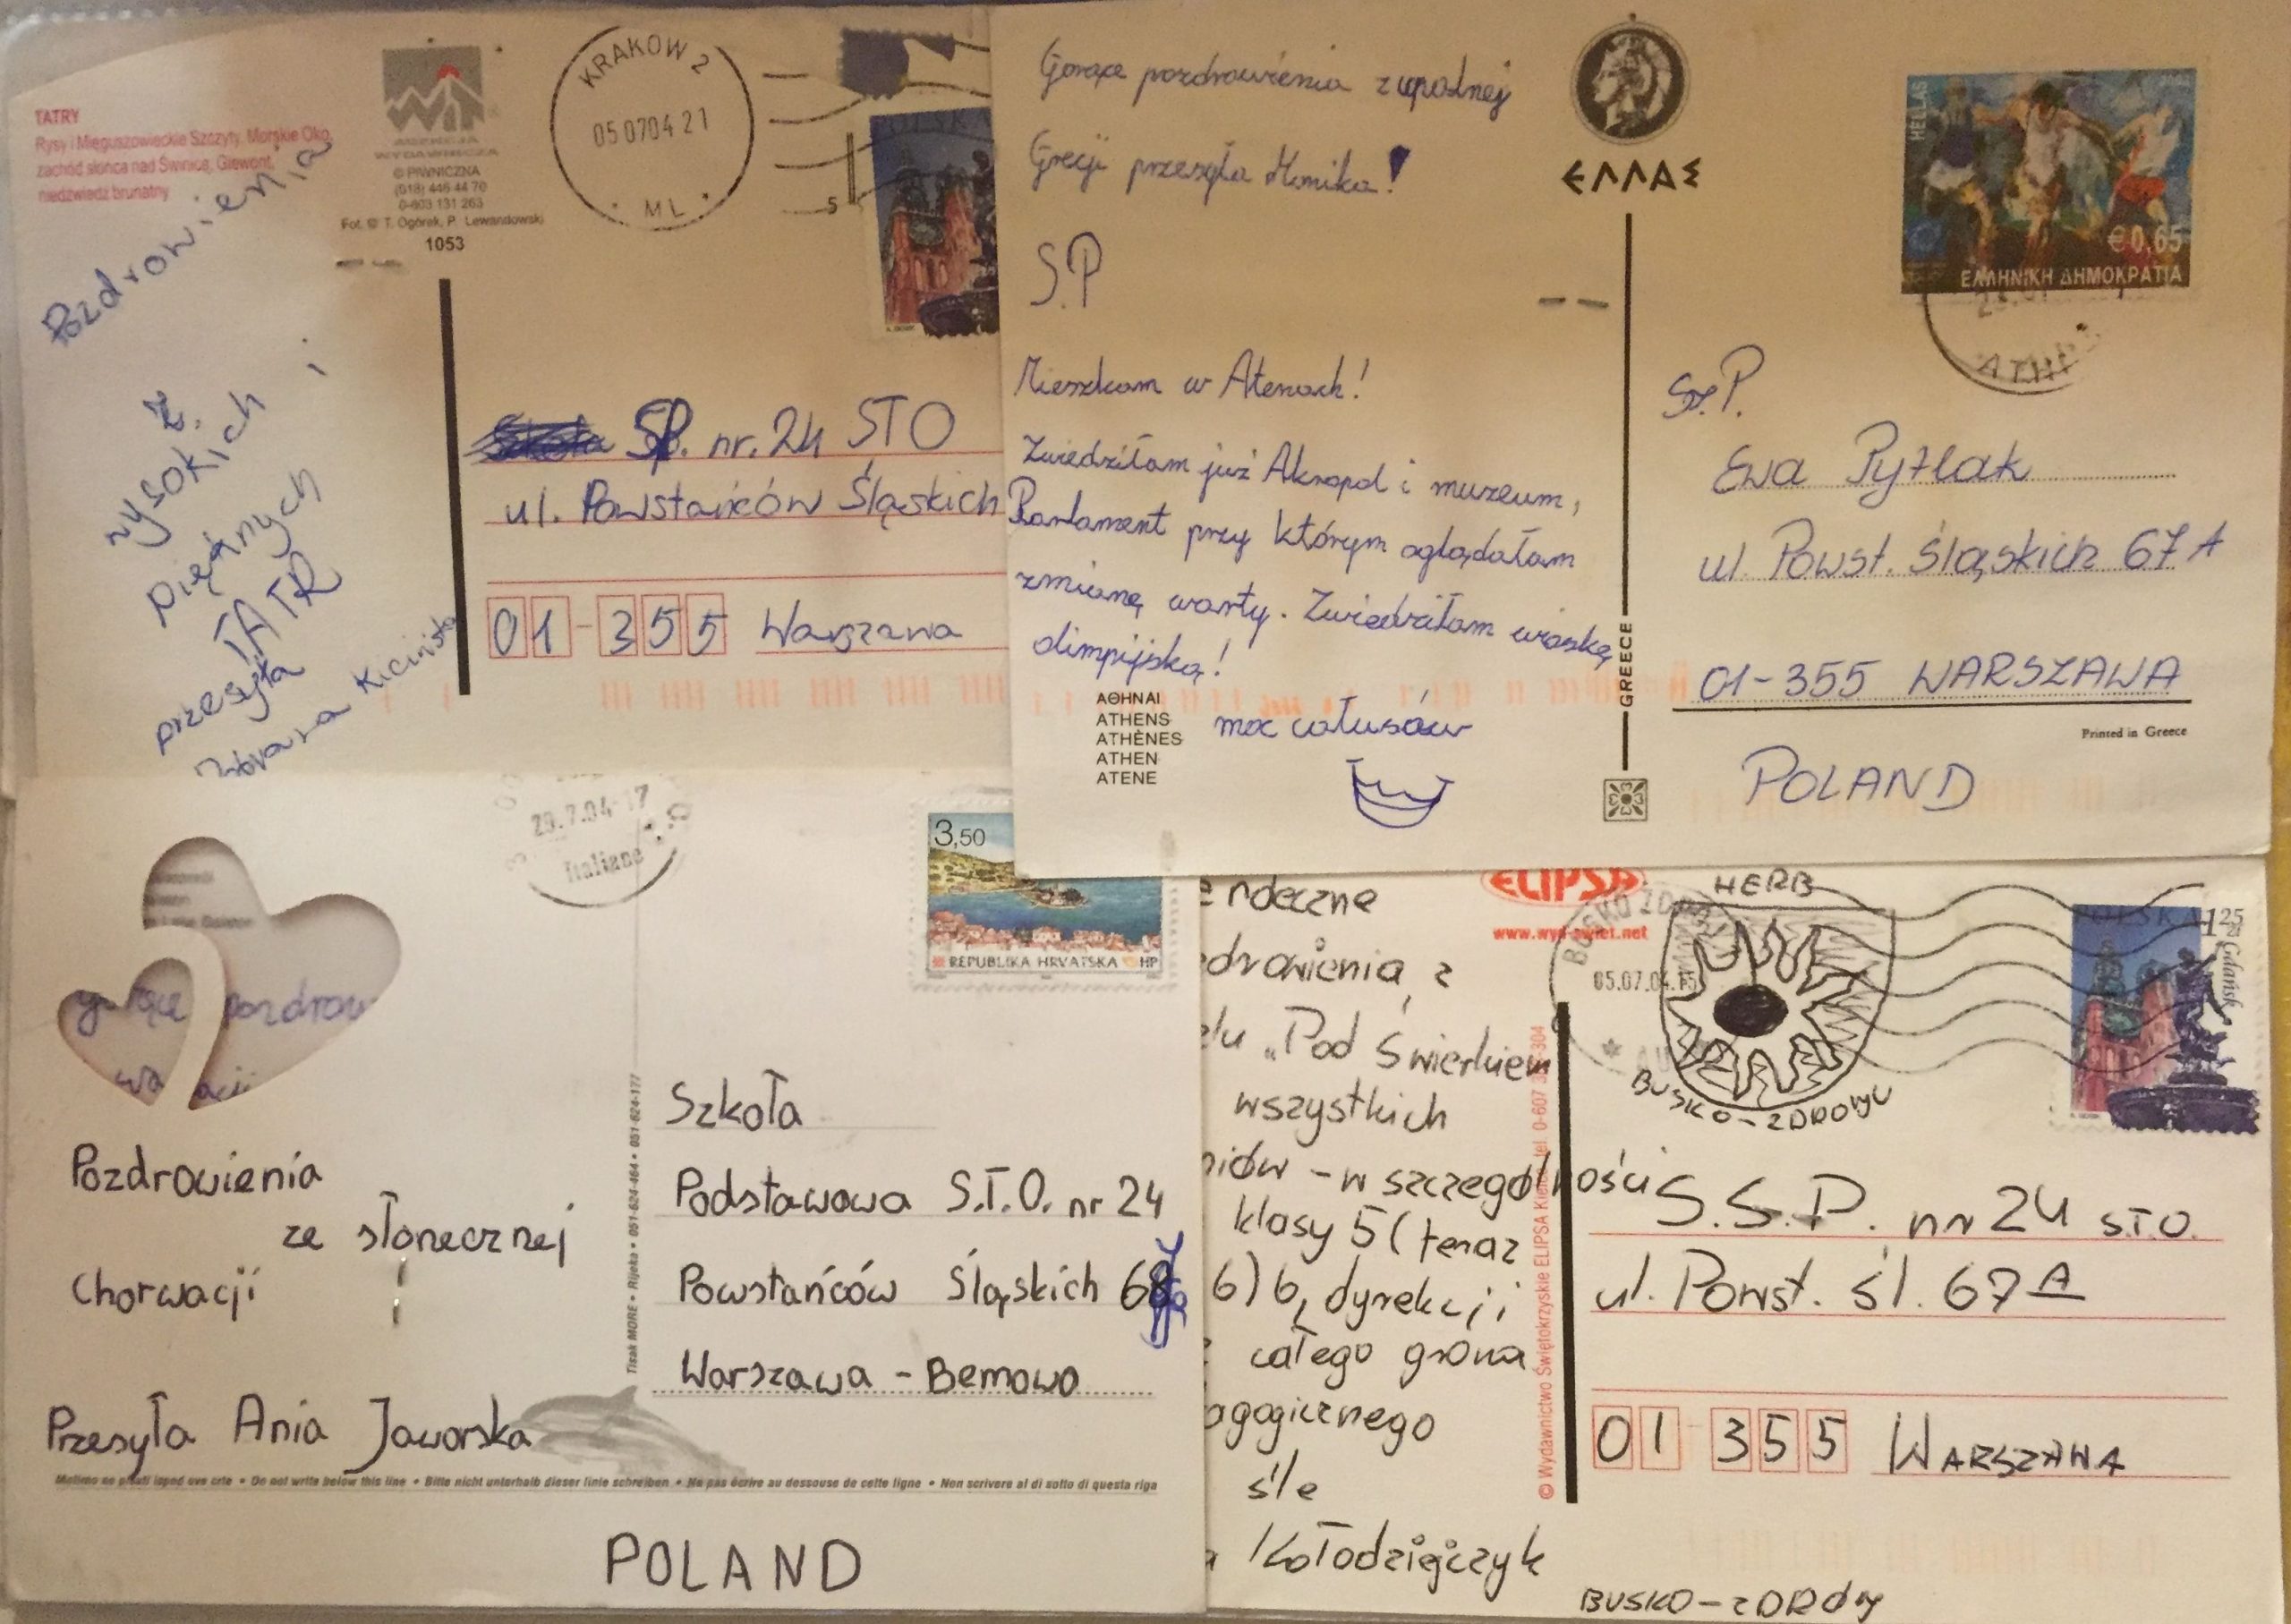 TATRY
Rysy i Mięguszowieckie Szczyty, Morskie Oko,
zachód słońca nad Świnicą, Giewont,
niedźwiedź brunatny
AGENCJA
WYDAWNICZA
© PIWNICZNA
(018) 446 44 70
0-603 131 263
Fot. © T. Ogórek, P. Lewandowski
1053
KRAKÓW 2
05 07 04 21
ML
5
POLSKA
Pozdrowienia
z
wysokich i
pięknych
TATR
przesyła
SP. nr. 24 STO
ul. Powstańców Śląskich
01-355 Warszawa
Gorące pozdrowienia z upalnej
Grecji przesyła Monika!
S.P
Mieszkam w Atenach!
Zwiedziłam już Akropol i muzeum,
Parlament przy którym oglądałam
zmianę warty. Zwiedziłam wioskę
olimpijską!
ΑΘΗΝΑΙ
ATHENS
ATHÈNES
ATHEN
ATENE
moc całusów
ΕΛΛΑΣ
GREECE
HELLAS
€0,65
ΕΛΛΗΝΙΚΗ ΔΗΜΟΚΡΑΤΙΑ
Sz.P.
Ewa Pytlak
ul. Powst. Śląskich 67 A
01-355 WARSZAWA
Printed in Greece
POLAND
29.7.04-17
Italiane
3,50
REPUBLIKA HRVATSKA HP
gorące pozdrow
wa acji
Pozdrowienia
ze słonecznej
Chorwacji
Przesyła Ania Jaworska
Tisak MORE • Rijeka • 051-624-464 • 051-624-177
Szkoła
Podstawowa S.T.O. nr 24
Powstańców Śląskich 67a
Warszawa - Bemowo
Molimo ne pisati ispod ove crte • Do not write below this line • Bitte nicht unterhalb dieser linie schreiben • Ne pas écrire au dessouse de cette ligne • Non scrivere al di sotto di questa riga
POLAND
erdeczne
drowienia z
lu „Pod Świerkiem
wszystkich
niów - w szczególności
klasy 5 (teraz
6) b, dyrekcji
całego grona
agogicznego
śle
a Kołodziejczyk
ELIPSA
www.wyd-swiet.net
© Wydawnictwo Świętokrzyskie ELIPSA
BUSKO ZDRÓJ
05.07.04.15
HERB
BUSKO-ZDROJU
POLSKA
1 25 zł
Gdańsk
S.S.P. nr 24 STO.
ul. Powst. śl. 67 A
01-355 WARSZAWA
BUSKO-ZDRÓJ